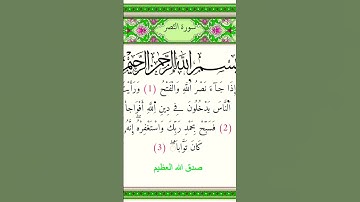 سورة النصر
بسم الله الرحمن الرحيم
إِذَا جَآءَ نَصْرُ اللَّهِ وَالْفَتْحُ (1) وَرَأَيْتَ
النَّاسَ يَدْخُلُونَ فِي دِينِ اللَّهِ أَفْوَاجاً
(2) فَسَبِّحْ بِحَمْدِ رَبِّكَ وَاسْتَغْفِرْهُ إِنَّهُ
كَانَ تَوَّاباً (3)
صدق الله العظيم